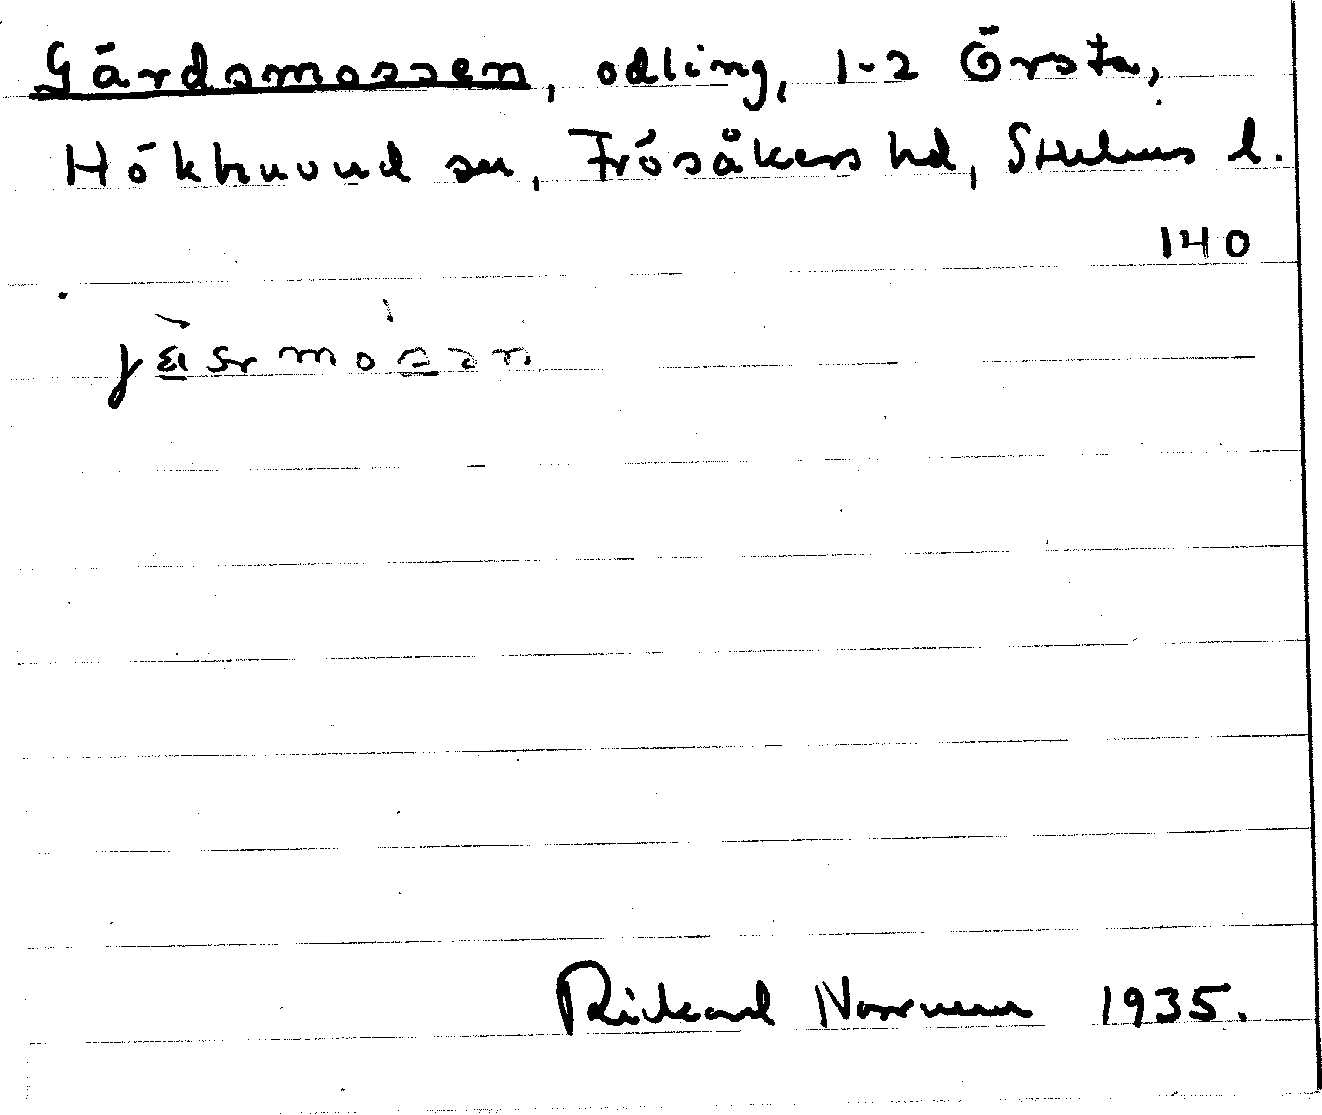 Gärdsmossen, odling, 1-2 Örsta,
Hökhuvud sn, Frösåkers hd, Sthlms l.
140
Rickard Norrman 1935.